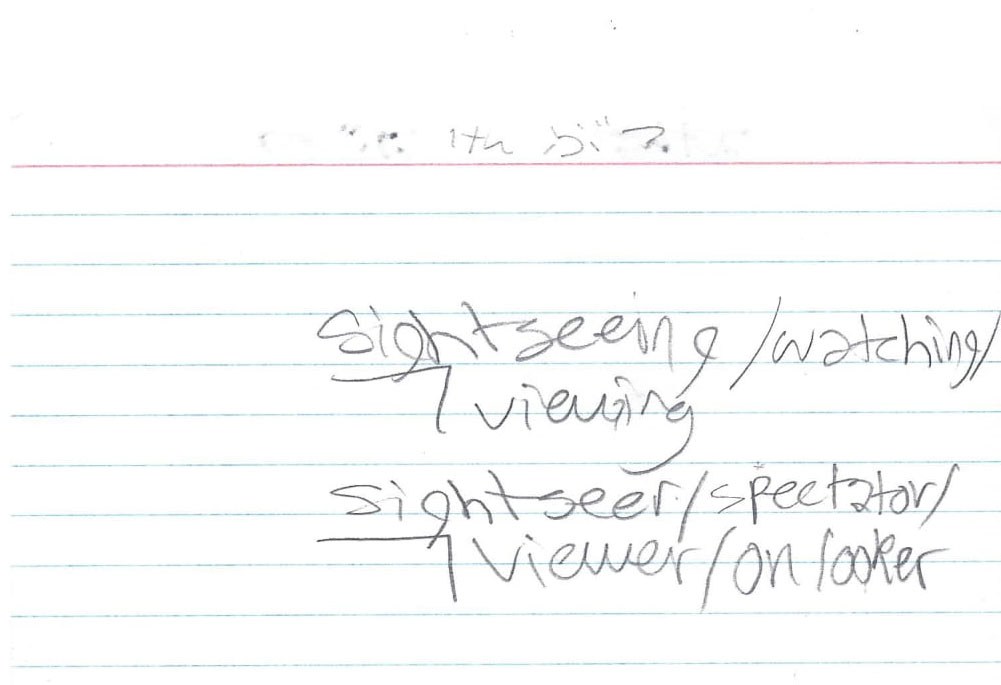 けんぶつ
sightseeing /watching/
viewing
sightseer/spectator/
viewer/onlooker